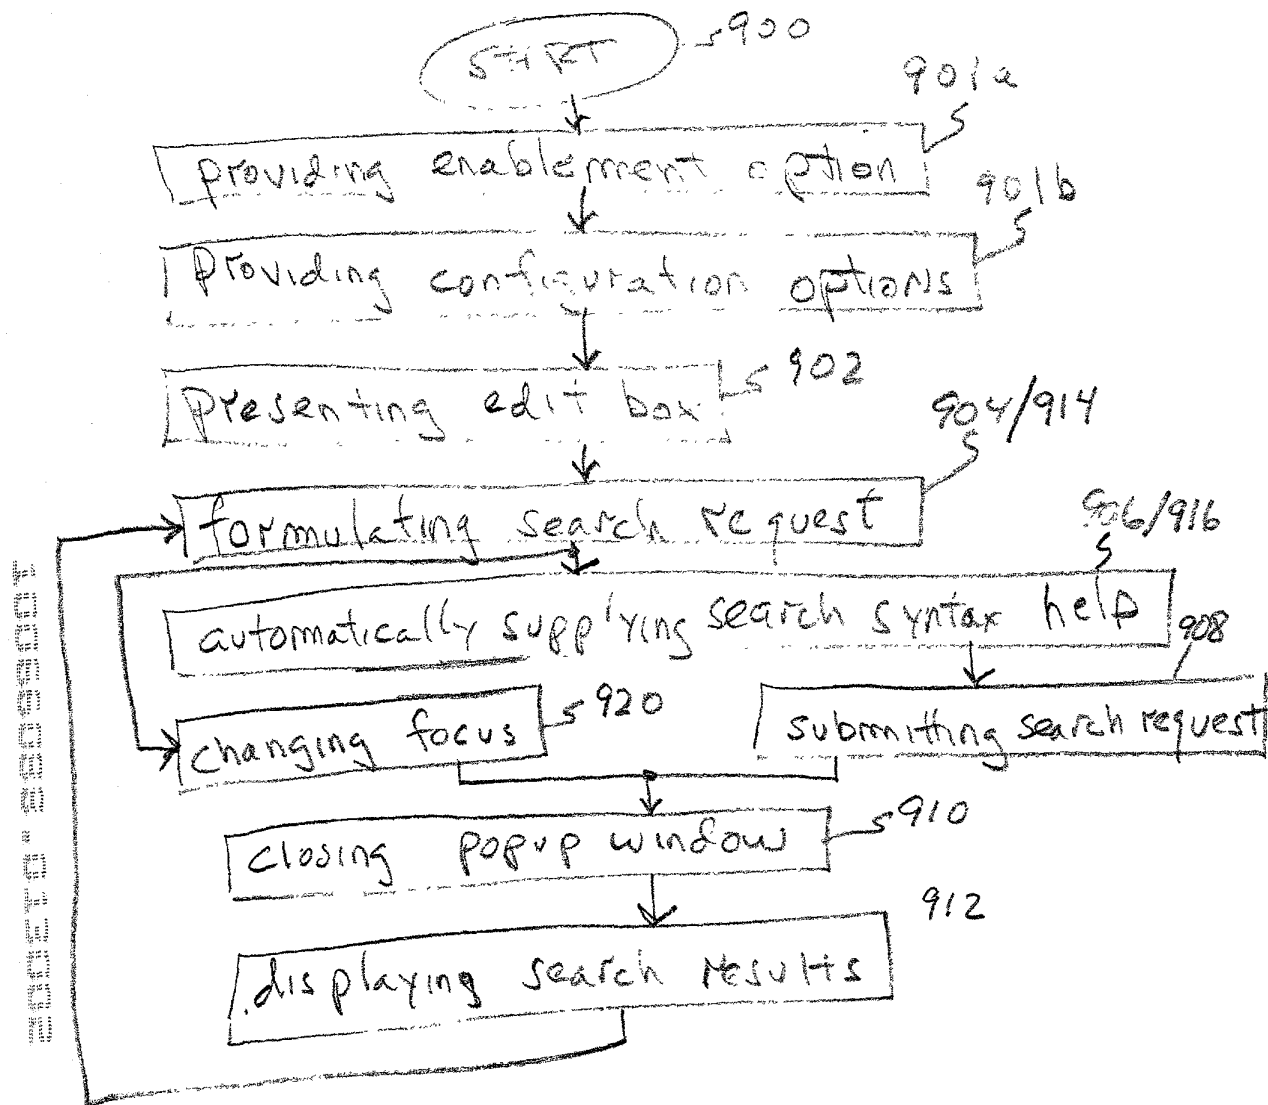 START 900
901a
providing enablement option
901b
providing configuration options
902
presenting edit box
904/914
formulating search request
906/916
automatically supplying search syntax help
908
changing focus 920
submitting search request
closing popup window 910
912
displaying search results
10066085.013002